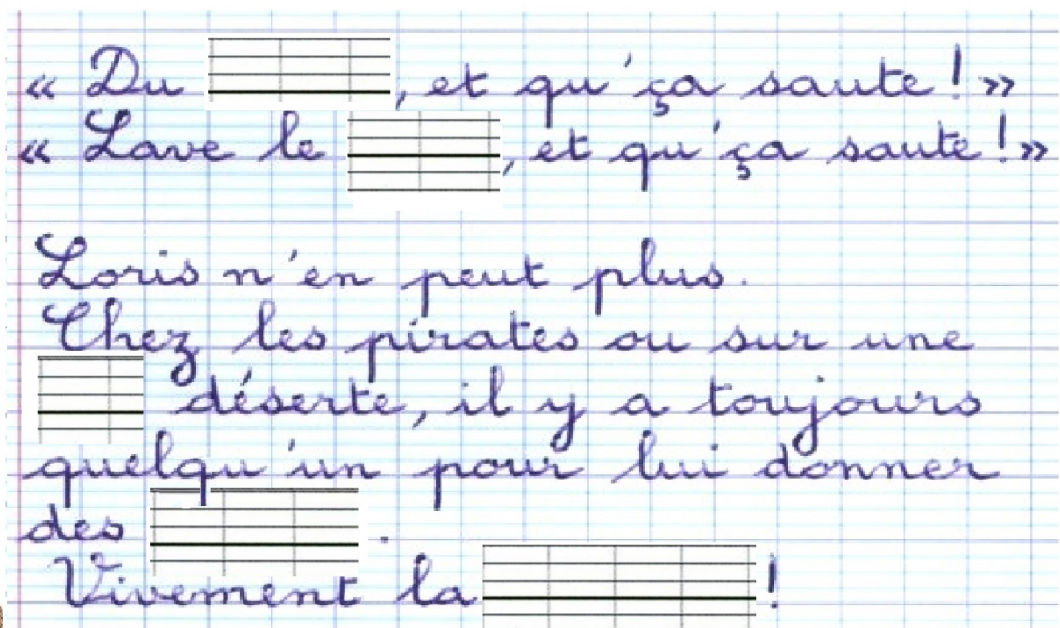 « Du , et qu'ça saute ! »
« Lave le , et qu'ça saute ! »
Loris n'en peut plus.
Chez les pirates ou sur une
déserte, il y a toujours
quelqu'un pour lui donner
des .
Vivement la !